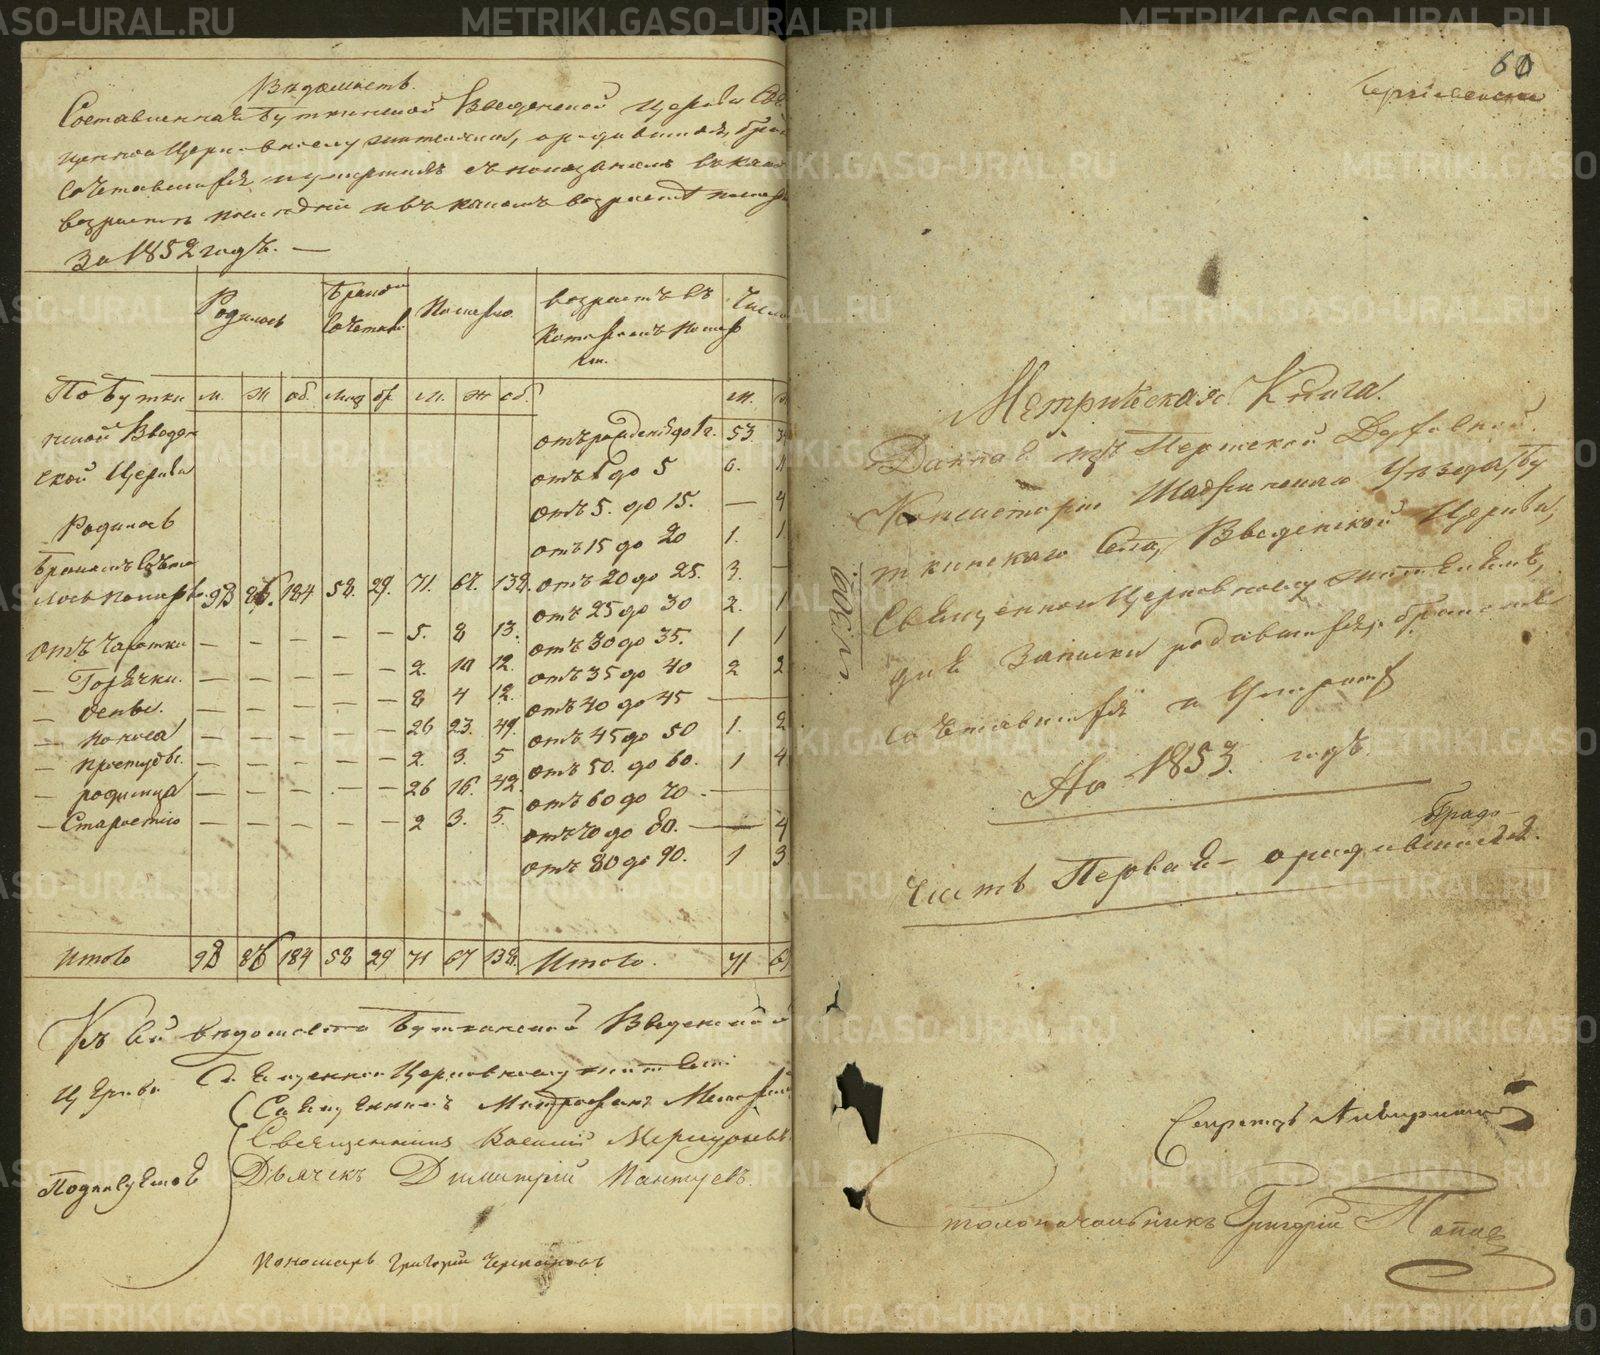 Вѣдомость.
Составленная Буткинской Введенской Церкви Свя
щенно Церковнослужителями, о родившихся, брако
сочетавшихся, и умершихъ съ показаніемъ
возрастъ и въ какомъ возрастѣ
За 1852 годъ. —
Родилось
Бракомъ сочетал
Померло
возрастъ въ которомъ помер ли.
Число
По Бутки м. ж об. лиц бр м. ж об. м.
нской Введен отъ рожденія до 1 г. 53.
ской Церкви отъ 1 до 5 6.
отъ 5. до 15. — 4
Родилось отъ 15 до 20 1. 1
Бракомъ сочета
лось померло 98 86. 184 58. 29. 71. 67. 138. отъ 20 до 25. 3. —
отъ 25 до 30 2. 1
отъ чахотки — — — — — 5. 8 13. отъ 30 до 35. 1 1
— Горячки. — — — — — 2. 10 12. отъ 35 до 40 2 2
— оспы. — — — — — 8 4 12. отъ 40 до 45 —
— поноса — — — — — 26 23. 49. отъ 45 до 50 1. 2
— простуды. — — — — — 2. 3. 5 отъ 50. до 60. 1 4
— родимца — — — — — 26 16. 42. отъ 60 до 70 —
— Старостію — — — — — 2 3. 5. отъ 70 до 80. — 4
отъ 80 до 90. 1 3
Итого 98 86 184 58 29 71 67 138. Итого. 71 6
Къ сей вѣдомости Буткинской Введенской
Церкви Священно Церковнослужители
Священникъ Митрофанъ
Священникъ Василій Меркурьевъ.
Подписуемся Дьячекъ Димитрій Пантуевъ.
Пономарь Григорій Черепановъ
60
Метрическая Книга.
Данная изъ Пермской Духовной
Консисторіи Шадринскаго Уѣзда, Бу
ткинскаго Села, Введенской Церкви,
Священно Церковнослужителямъ,
для Записки родившихся, бракомъ
сочетавшихся и Умершихъ
На 1853. годъ.
Часть Первая — о родившихся.
Секретарь
Столоначальникъ Григорій Попов
METRIKI.GASO-URAL.RU